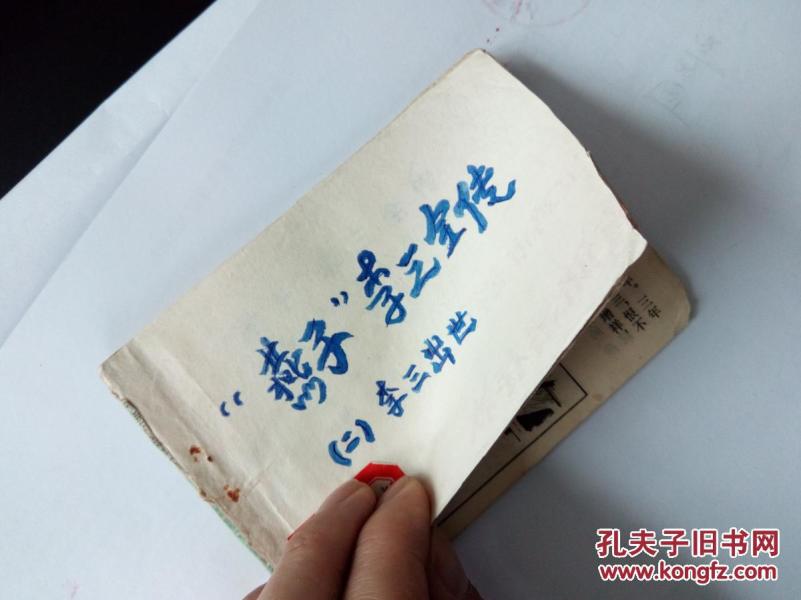 “燕子”李三全传
(二)李三出世
三年
恨不
孔夫子旧书网
www.kongfz.com